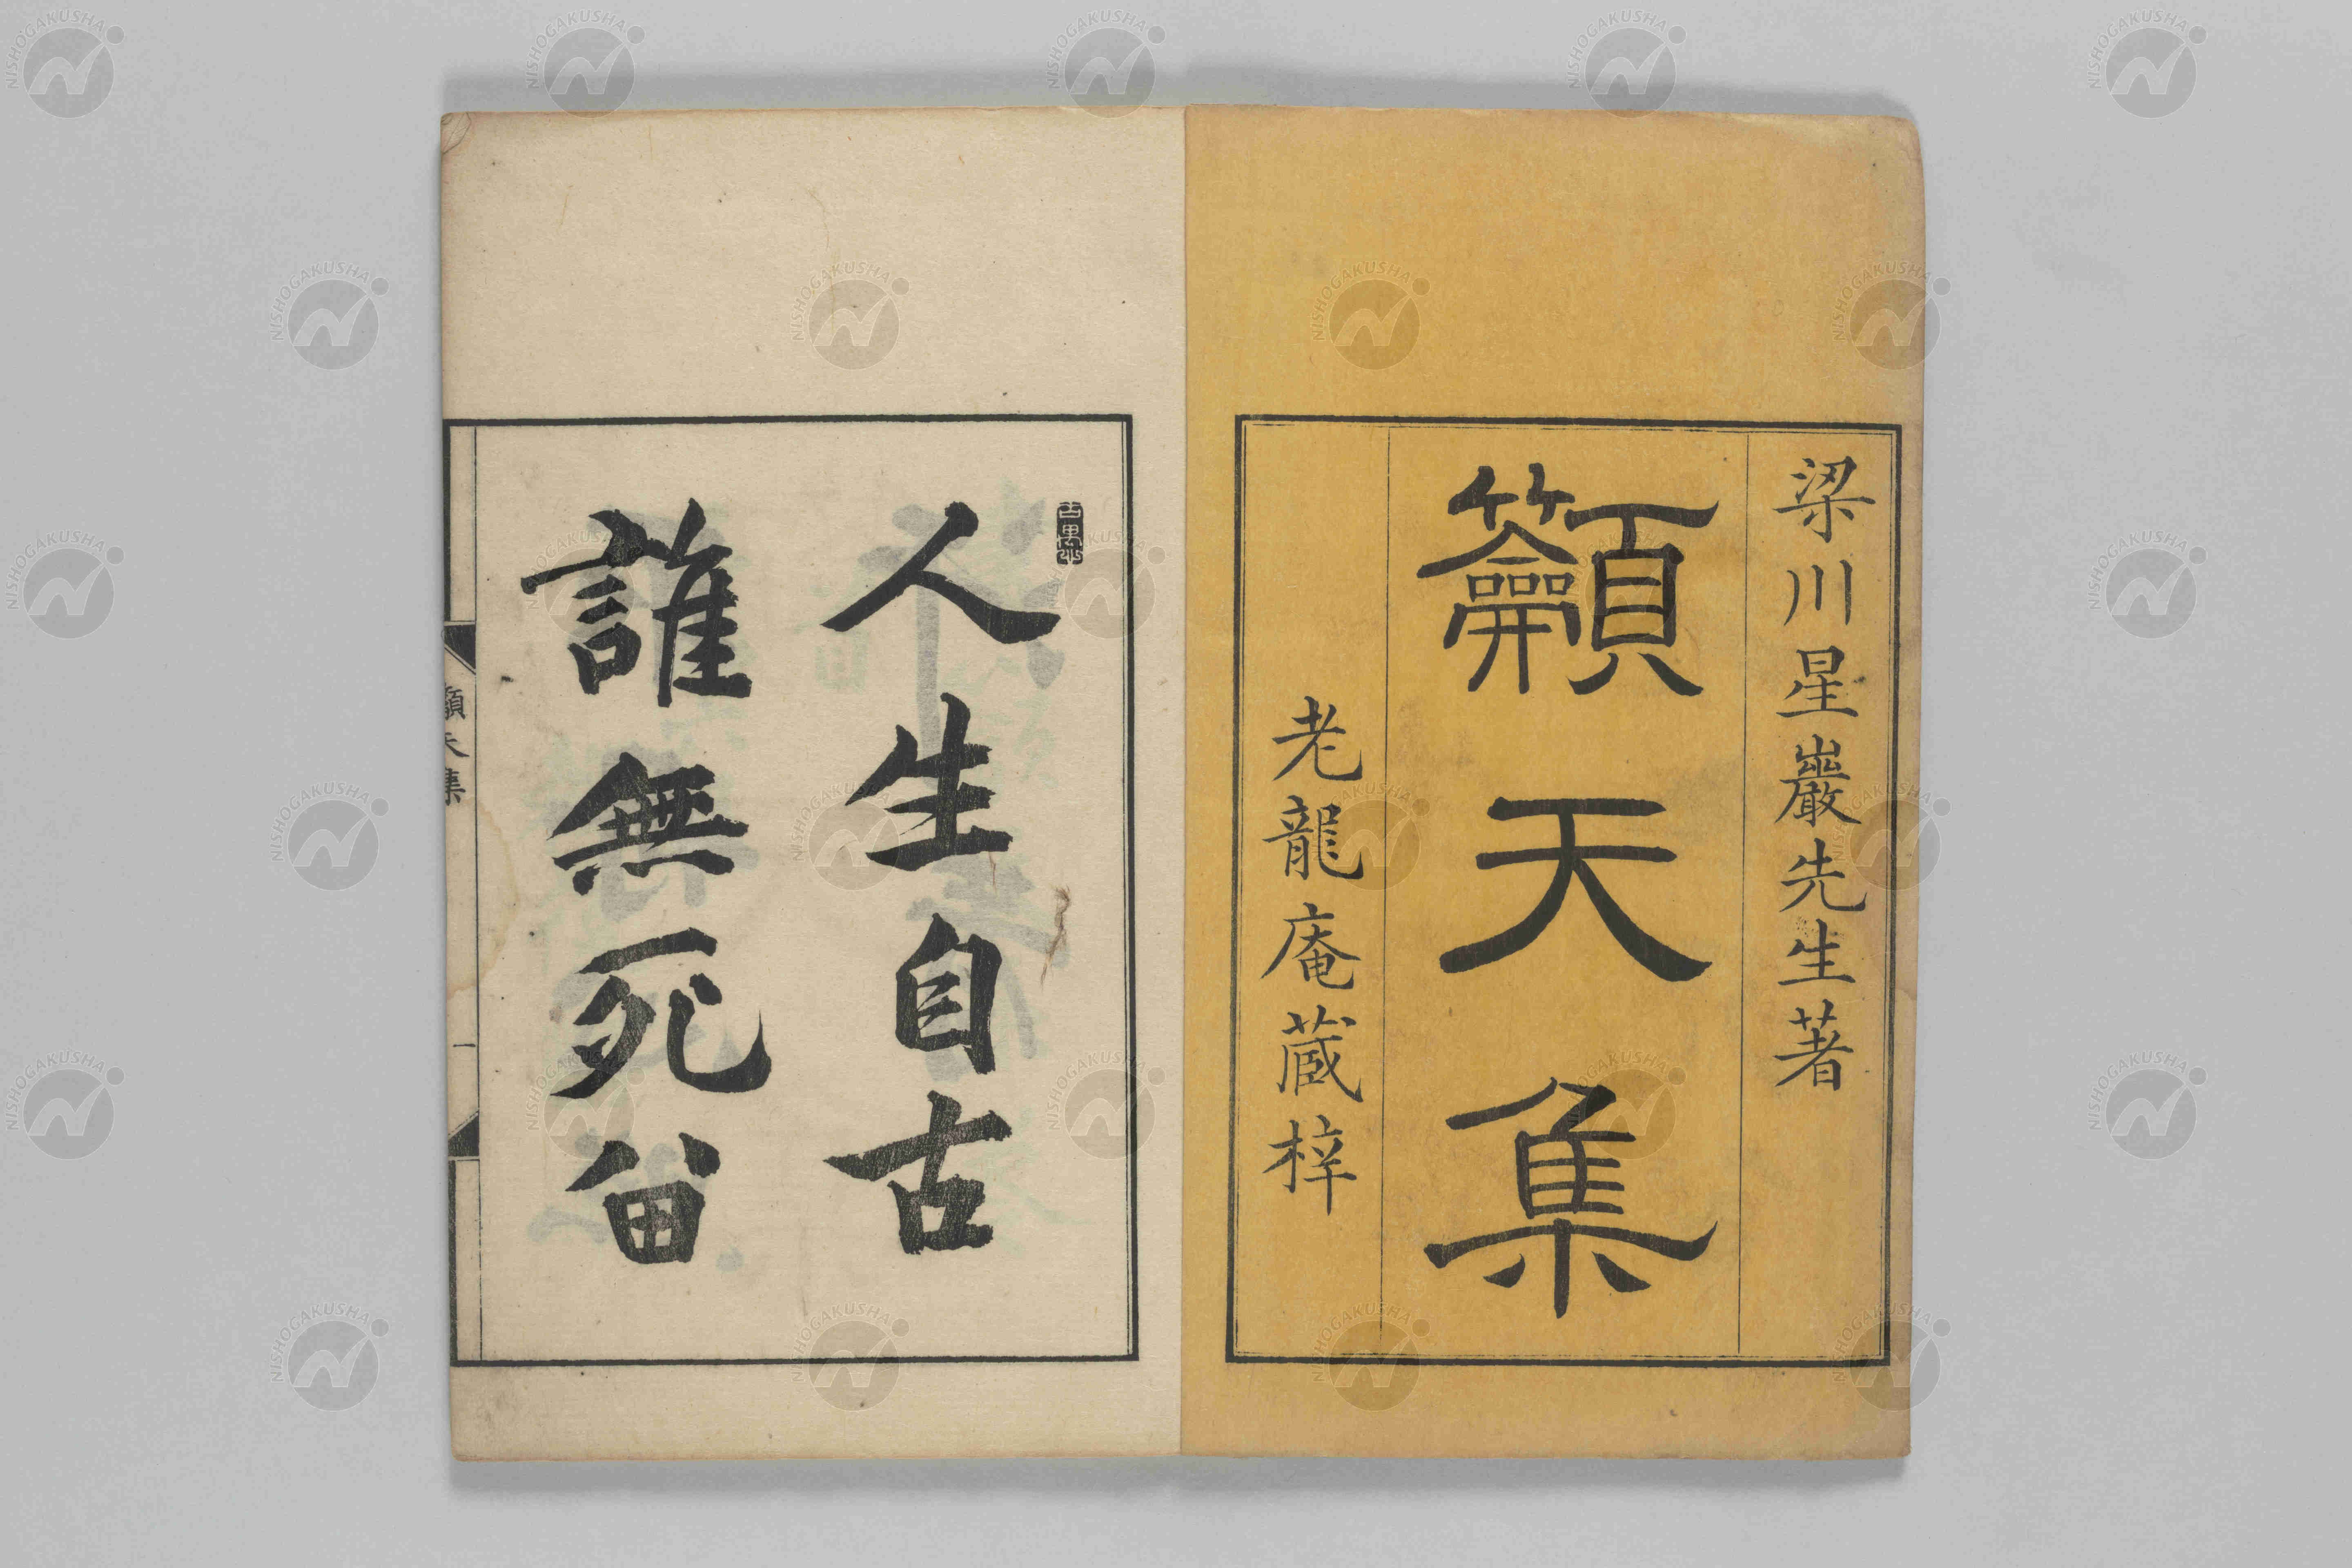 梁川星巖先生著
籲天集
老龍庵蔵梓
人生自古
誰無死留
籲天集
一
NISHOGAKUSHA